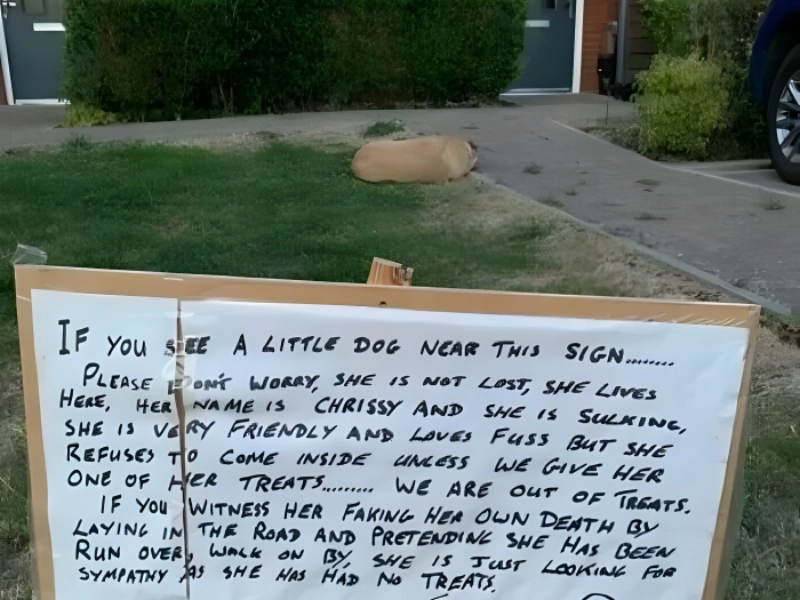 IF YOU SEE A LITTLE DOG NEAR THIS SIGN........
PLEASE DON'T WORRY, SHE IS NOT LOST, SHE LIVES
HERE, HER NAME IS CHRISSY AND SHE IS SULKING,
SHE IS VERY FRIENDLY AND LOVES FUSS BUT SHE
REFUSES TO COME INSIDE UNLESS WE GIVE HER
ONE OF HER TREATS......... WE ARE OUT OF TREATS.
IF YOU WITNESS HER FAKING HER OWN DEATH BY
LAYING IN THE ROAD AND PRETENDING SHE HAS BEEN
RUN OVER, WALK ON BY, SHE IS JUST LOOKING FOR
SYMPATHY AS SHE HAS HAD NO TREATS.